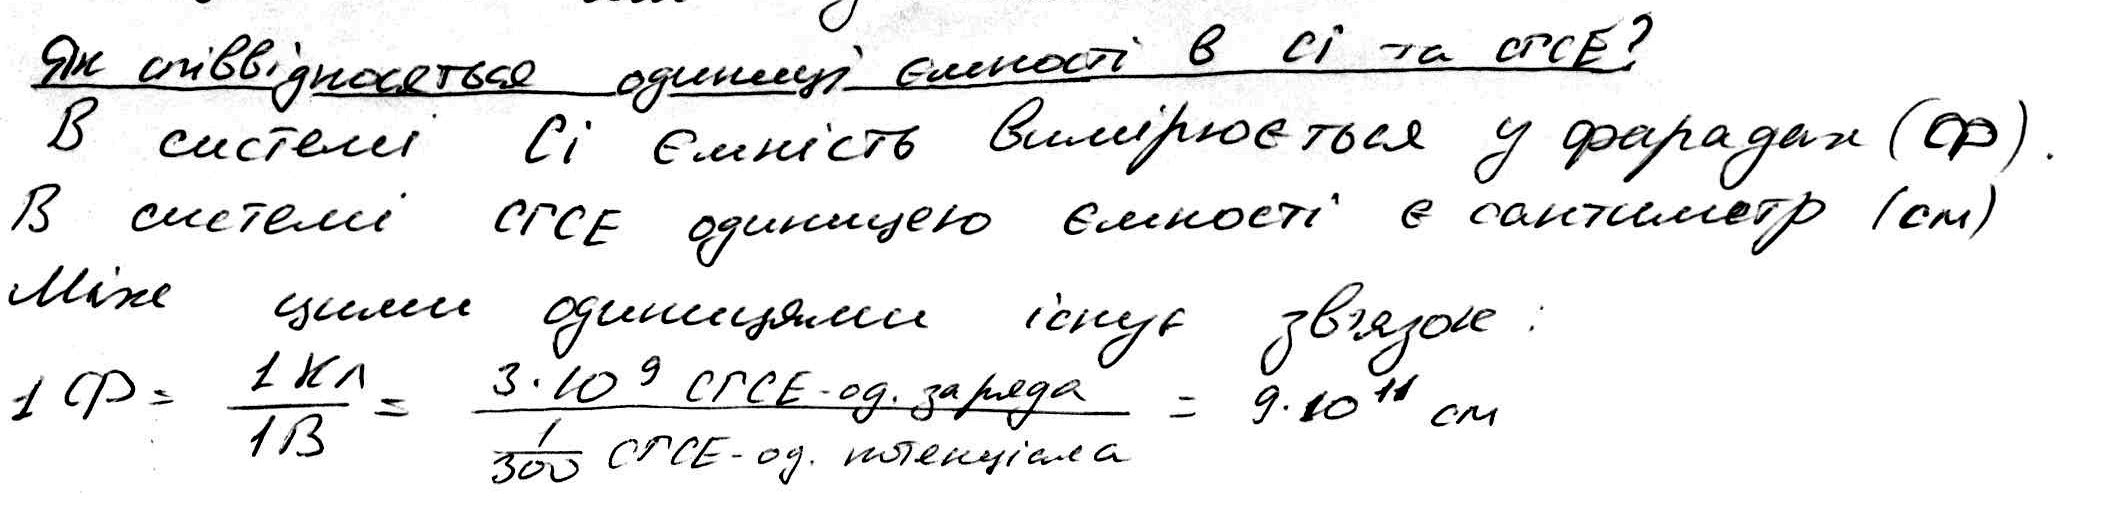 Як співвідносяться одиниці ємності в СІ та СГСЕ?
В системі Сі Ємність вимірюється у фарадах (Ф).
В системі СГСЕ одиницею ємності є сантиметр (см)
Між цими одиницями існує зв'язок:
1 Ф = 1 Кл / 1 В = 3·10⁹ СГСЕ-од. заряда / 1/300 СГСЕ-од. потенціала = 9·10¹¹ см